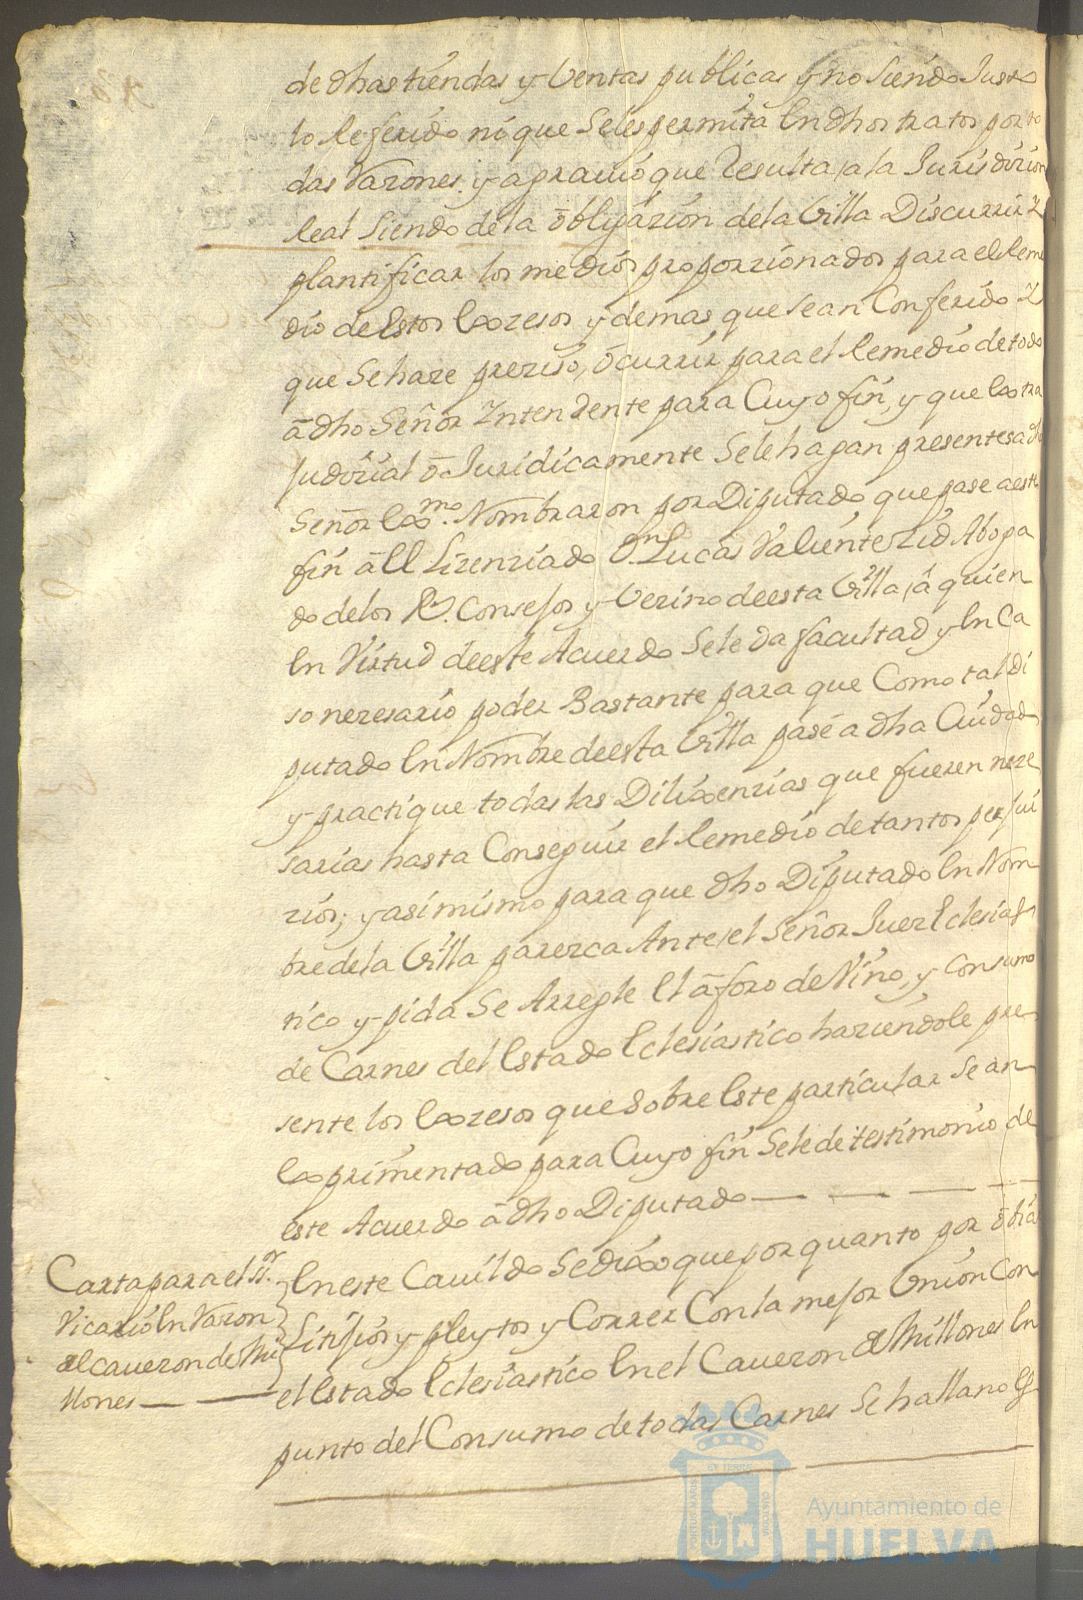 de dhas tiendas y Ventas publicas y no siendo Justo
lo Referido ni que Selespermita En dhos tratos por to
das Razones, y agravio que Resulta a la Jurisdizion
Real siendo de la obligazion de la Villa Discurrir Y
plantificar los medios proporzionados para el Reme
dio de estos Exzesos y demas que sean Conferido Y
que Sehaze preziso, ocurrir para el Remedio de todo
a dho Señor Yntendente para Cuyo fin, y que Extra
judizial o Juridicamente Selehagan presentes a dho
Señor Exmo. Nombraron por Diputado que pase a este
fin a El Lizenziado Dn. Lucas Valiente Zid Aboga
do de los Rs. Consejos y Vezino deesta Villa, a quien
En Virtud deeste Acuerdo Sele da facultad y En Ca
so nezesario poder Bastante para que Como tal Di
putado En Nombre deesta Villa pase a dha Ciudad
y practique todas las Dilixenzias que fueren neze
sarias hasta Conseguir el Remedio de tantos perjui
zios; y asimismo para que dho Diputado En Nom
bre de la Villa parezca Ante el Señor Juez Eclesias
tico y pida Se Arregle El aforo de Vino, y Consumo
de Carnes del Estado Eclesiastico haziendole pre
sente los Exzesos que sobre Este particular Se an
Exprimentado para Cuyo fin Sele de testimonio de
este Acuerdo a dho Diputado — — — —
Carta para el Sr.
Vicario En Razon
al caueron de Mi
llones — —
En este Cauildo Sedixo que por quanto por obiar
Litijios y pleytos y Correr Con la mejor Union Con
el Estado Eclesiastico En el Caueron de Millones En
punto del Consumo de todas Carnes Se hallan
Ayuntamiento de
HUELVA